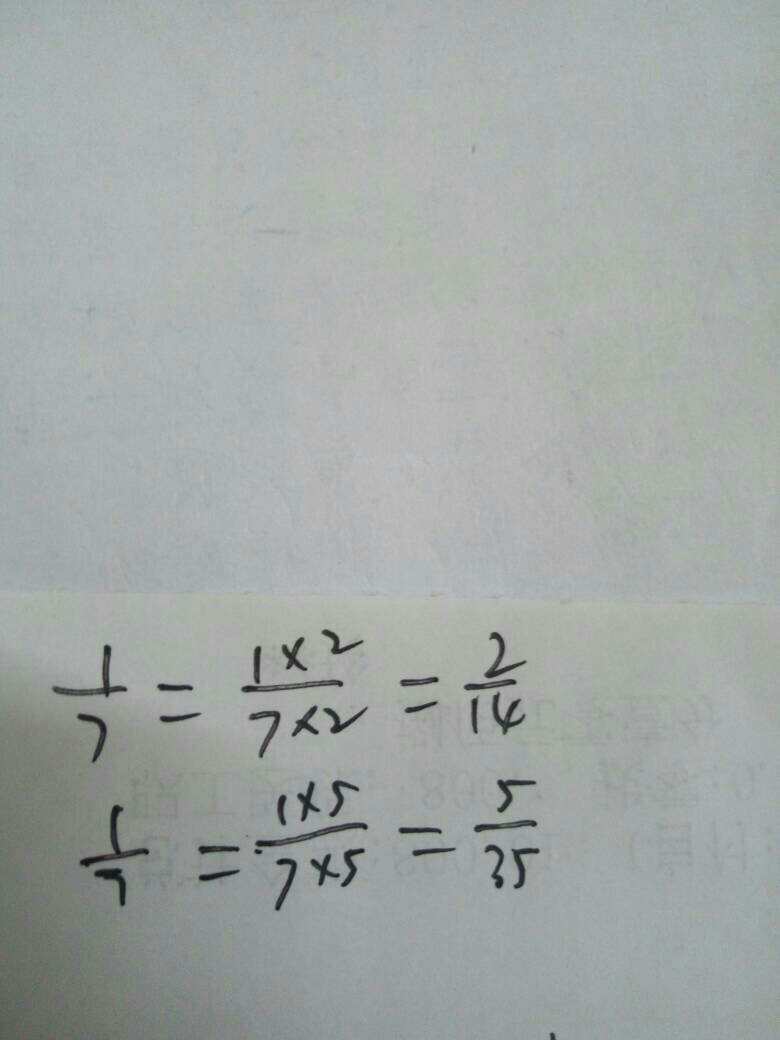 1/7 = 1×2/7×2 = 2/14
1/7 = 1×5/7×5 = 5/35